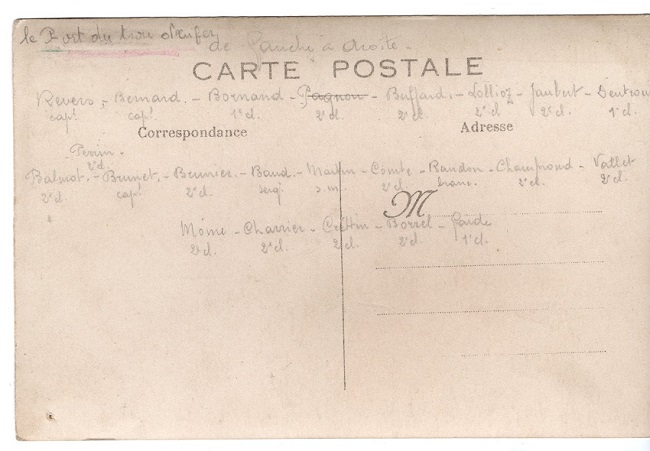 le Port du trou d'enfer
de Gauche à droite -
CARTE POSTALE
Revers, - Bernard. - Bornand - Pagnon - Buffard, - Lollioz - Jaubert - Dentrou
cap! cap! 1e cl. 2e cl. 2e cl. 2e cl. 2e cl. 1e cl.
Correspondance Adresse
Perrin -
2e cl.
Balmat, - Brunet, - Beurrier. - Baud. - Martin - Comte - Randon - Champrond - Vallet
2e cl. cap! 2e cl. serg! s.m. 2e cl. 2e cl. 2e cl.
M
Moine - Charrier - Crettin - Borrel - Jarde
2e cl. 2e cl. 2e cl. 2e cl. 1e cl.